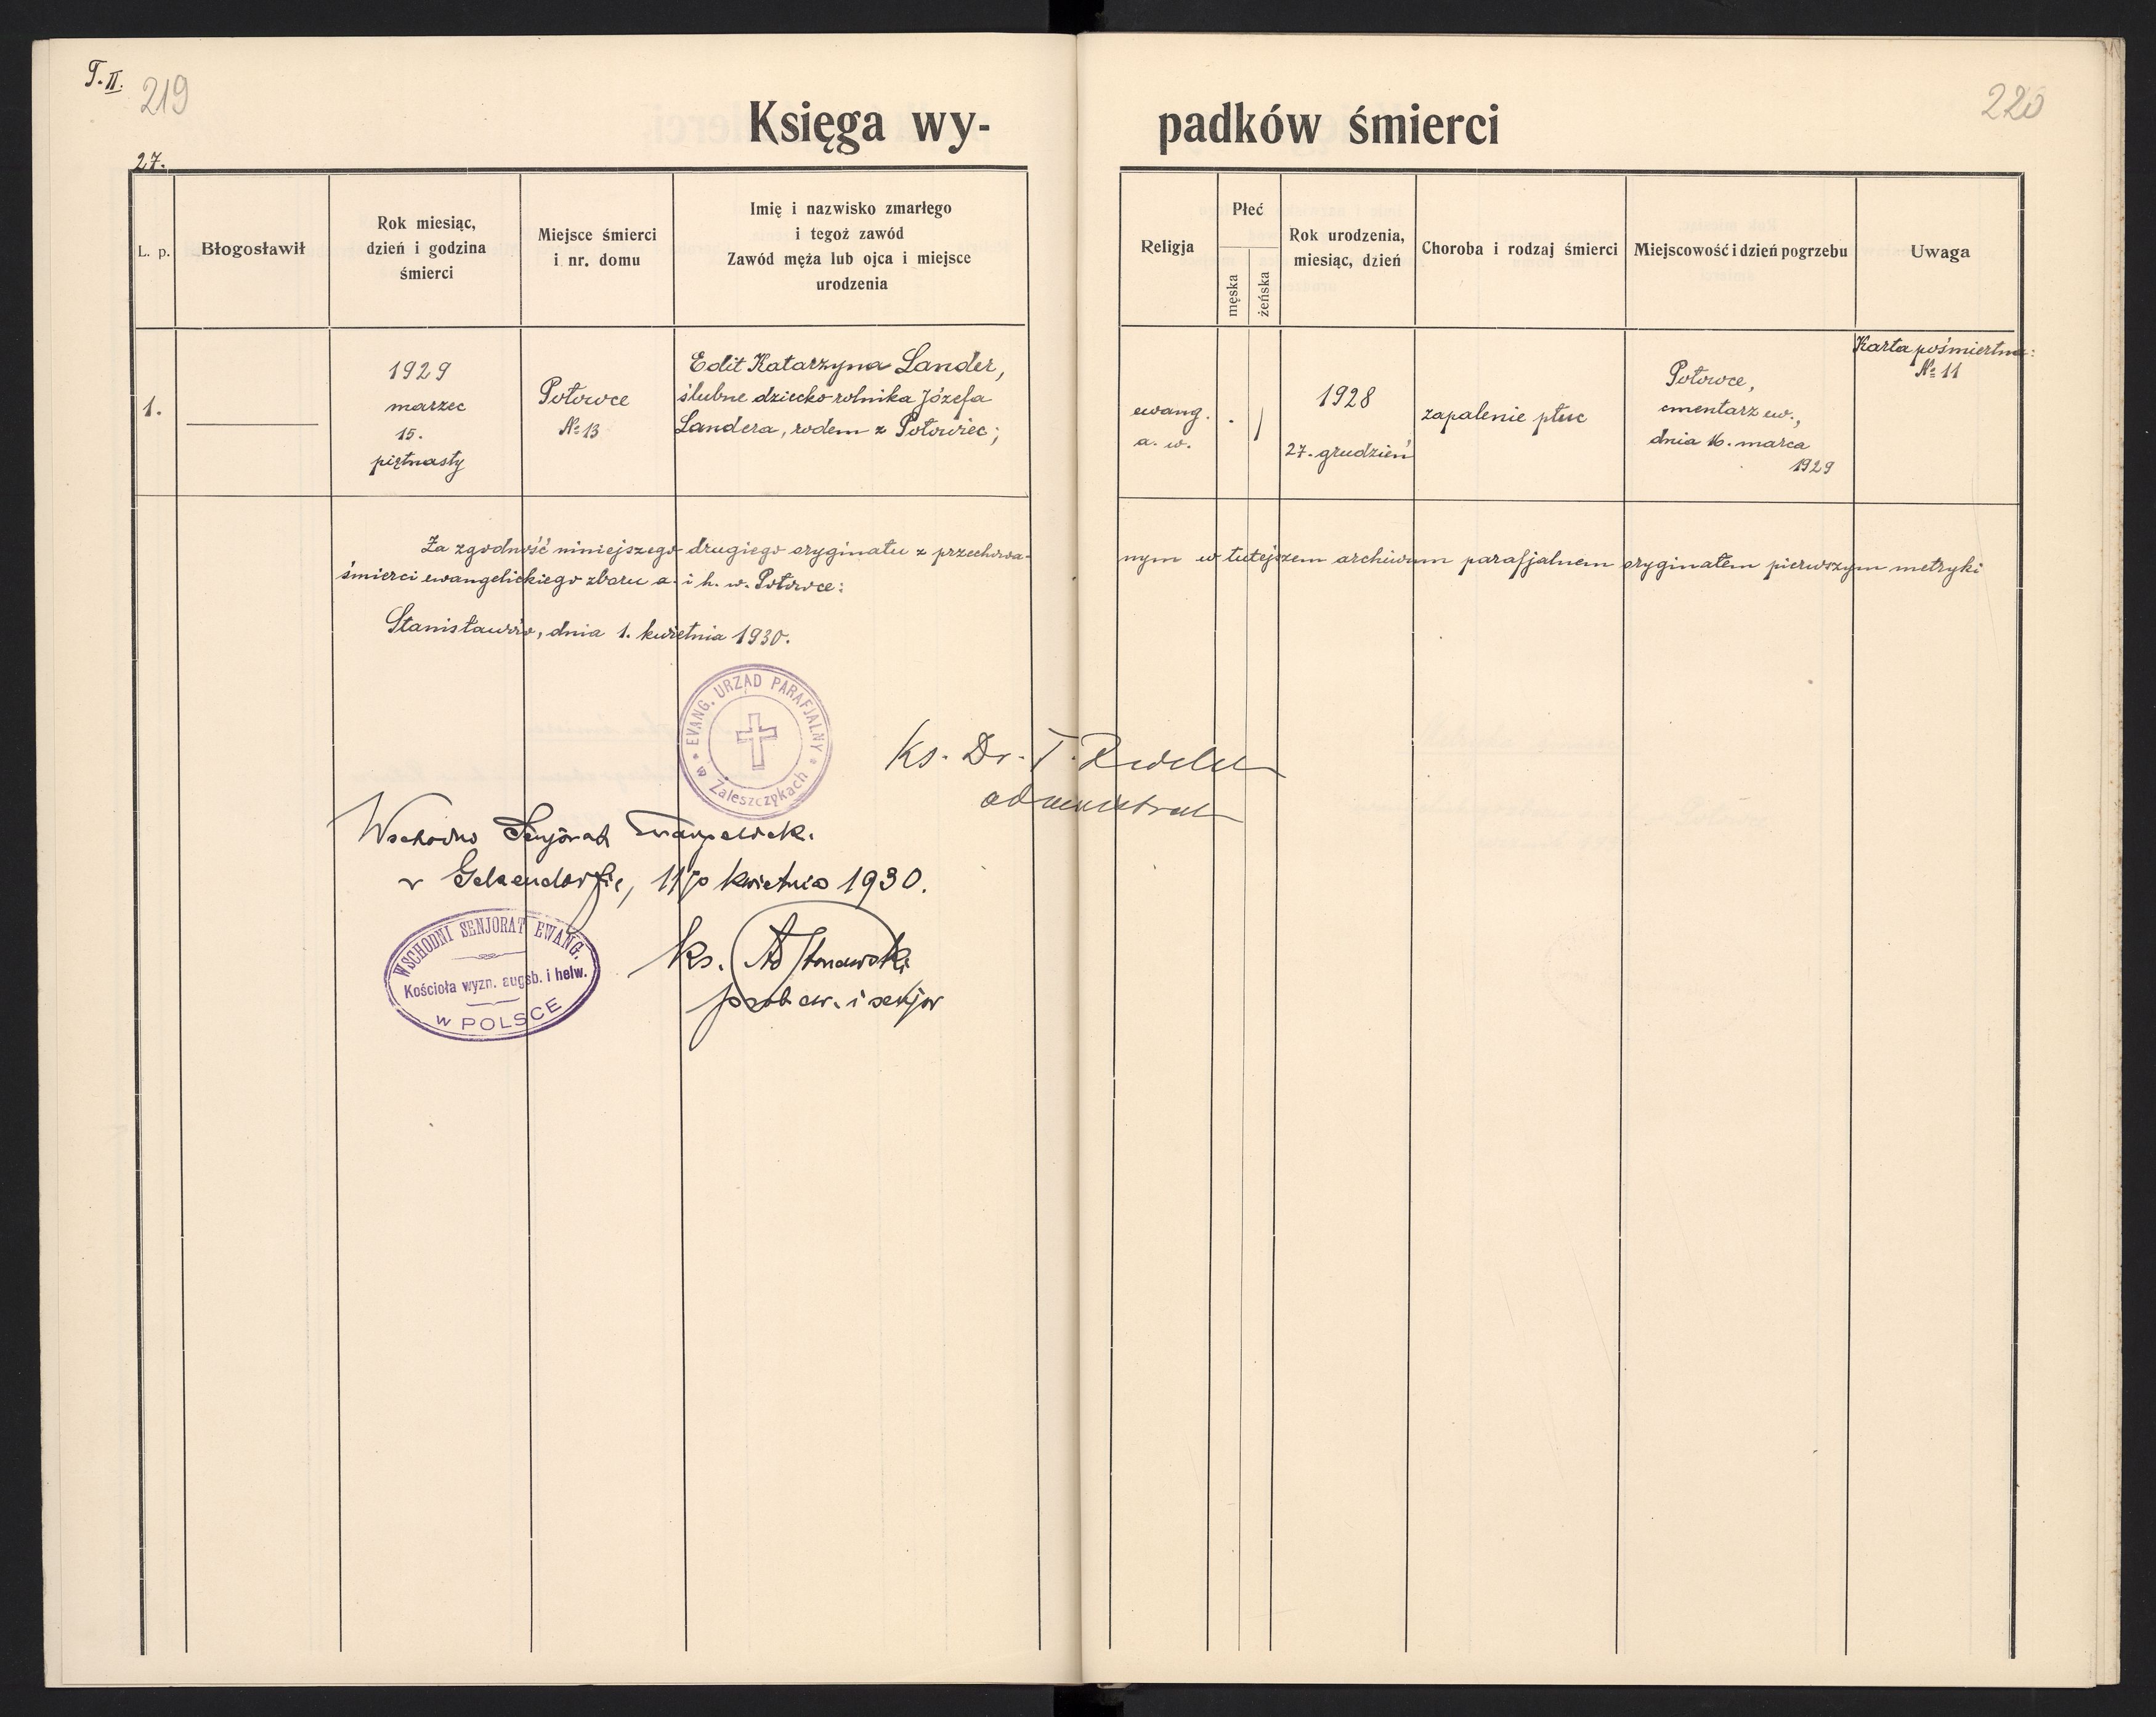 T. II.
219
220
Księga wy-
padków śmierci
27.
L. p.
Błogosławił
Rok miesiąc,
dzień i godzina
śmierci
Miejsce śmierci
i nr. domu
Imię i nazwisko zmarłego
i tegoż zawód
Zawód męża lub ojca i miejsce
urodzenia
Religja
Płeć
męska
żeńska
Rok urodzenia,
miesiąc, dzień
Choroba i rodzaj śmierci
Miejscowość i dzień pogrzebu
Uwaga
1.
1929
marzec
15.
piętnasty
Połowce
№ 13
Edit Katarzyna Lander,
ślubne dziecko rolnika Józefa
Landera, rodem z Połowiec;
ewang.
a. w.
1928
27. grudzień
zapalenie płuc
Połowce,
cmentarz ew.,
dnia 16. marca
1929
Karta pośmiertna:
№ 11
Za zgodność niniejszego drugiego oryginału z przechowa-
nym w tutejszem archiwum parafjalnem oryginałem pierwszym metryki
śmierci ewangelickiego zboru a. i h. w. Połowce:
Stanisławów, dnia 1. kwietnia 1930.
EVANG. URZĄD PARAFJALNY
w Zaleszczykach
Ks. Dr. T.
administrator
Wschodni Senjorat Ewangelick.
w Gelsendorfie, 11go kwietnia 1930.
WSCHODNI SENJORAT EWANG.
Kościoła wyzn. augsb. i helw.
w POLSCE
ks.
prob. ew. i senjor